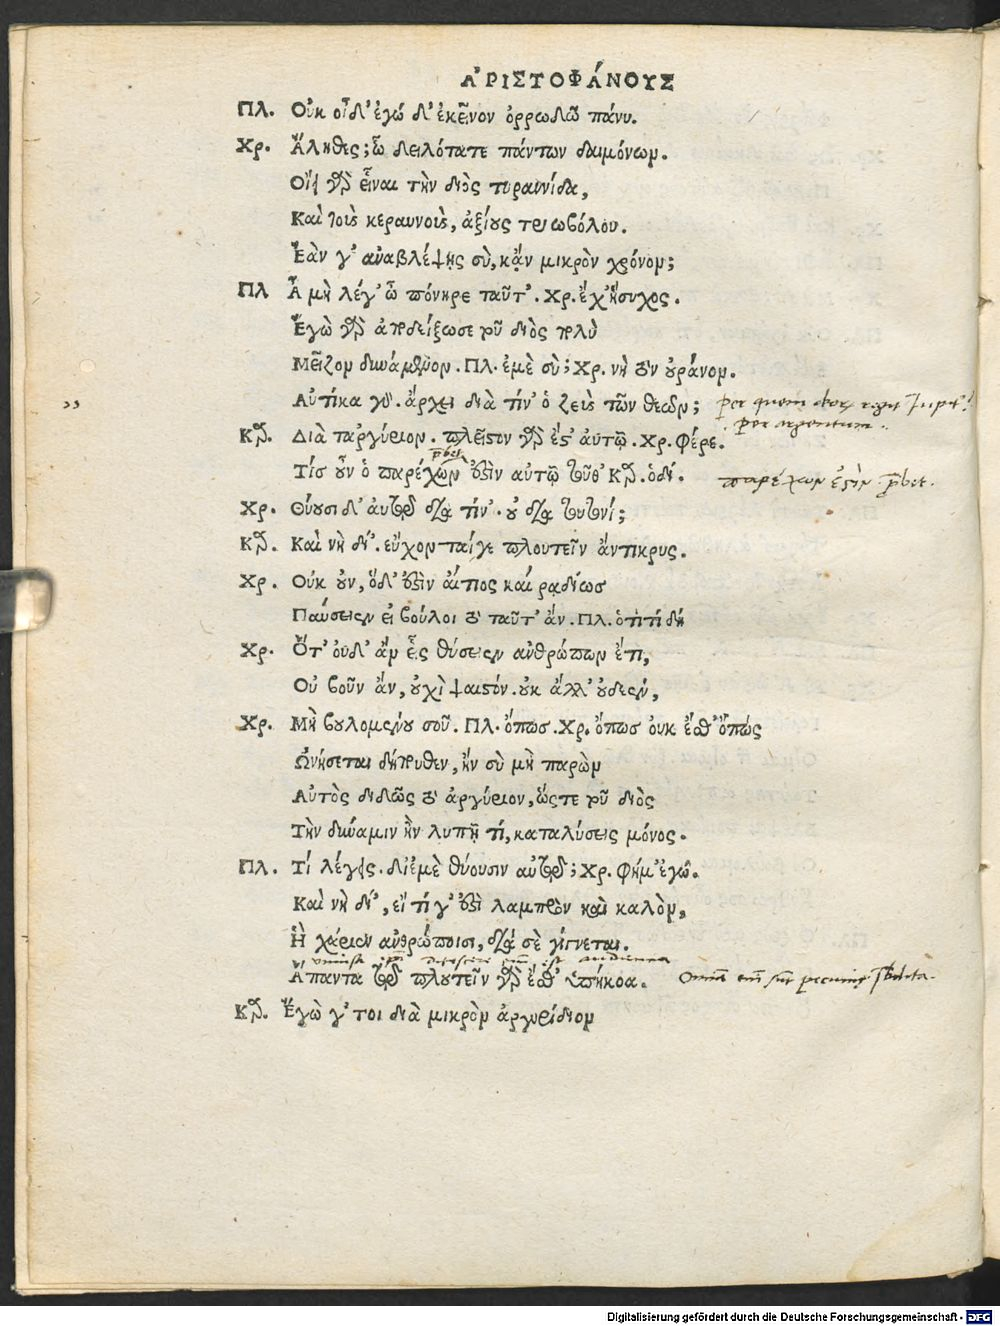 ἈΡΙΣΤΟΦΆΝΟΥΣ
Πλ. Οὐκ οἶδ' ἐγώ δ' ἐκεῖνον ὀρρωδῶ πάνυ.
Χρ. Ἄληθες; ὦ δειλότατε πάντων δαιμόνων.
Οἴει γὰρ εἶναι τὴν διὸς τυραννίδα,
Καὶ τοὺς κεραυνοὺς, ἀξίους τριωβόλου.
Ἐὰν γ' ἀναβλέψῃς σὺ, κᾂν μικρὸν χρόνον;
Πλ Ἆ μὴ λέγ' ὦ πόνηρε ταῦτ'. Χρ. ἔχ' ἥσυχος.
Ἐγὼ γὰρ ἀποδείξω σε τοῦ διὸς πολὺ
Μεῖζον δυνάμενον. Πλ. ἐμὲ σὺ; Χρ. νὴ τὸν οὐράνον.
Αὐτίκα γὰρ. ἄρχει διὰ τίν' ὁ ζεὺς τῶν θεῶν; per quem deos regit Jupit?
per argentum.
Κα. Διὰ τἀργύριον. πλεῖστον γὰρ ἐστ' αὐτῷ. Χρ. Φέρε.
Τίς οὖν ὁ παρέχων ἐστὶν αὐτῷ τοῦθ' Κα. ὁδί. παρέχων ἐστὶν
Χρ. Θύουσι δ' αὐτῷ διὰ τίν'. οὐ διὰ τουτονί;
Κα. Καὶ νὴ δί'. εὔχονταί γε πλουτεῖν ἄντικρυς.
Χρ. Οὐκ οὖν, ὅδ' ἐστὶν αἴτιος καὶ ραδίως
Παύσειεν εἰ βούλοιτο ταῦτ' ἄν. Πλ. ὁτὶ τί δή
Χρ. Ὅτ' οὐδ' ἂν εἷς θύσειεν ἀνθρώπων ἔτι,
Οὐ βοῦν ἄν, οὐχὶ ψαιστόν. οὐκ ἄλλ' οὐδεὲν,
Χρ. Μὴ βουλομένου σοῦ. Πλ. ὅπως. Χρ. ὅπως οὐκ ἔσθ' ὅπώς
Ὠνήσεται δήπουθεν, ἢν σὺ μὴ παρὼν
Αὐτὸς διδῶς τὸ ἀργύριον, ὥστε τοῦ διὸς
Τὴν δύναμιν ἢν λυπῇ τί, καταλύσεις μόνος.
Πλ. Τί λέγεις. δι' ἐμὲ θύουσιν αὐτῷ; Χρ. φήμ' ἐγώ.
Καὶ νὴ δί', εἴ τί γ' ἐστὶ λαμπρὸν καὶ καλὸν,
Ἢ χάριεν ἀνθρώποισι, διὰ σὲ γίγνεται.
omnia est
Ἅπαντα τῷ πλουτεῖν γὰρ ἔσθ' ὑπήκοα. Omnia
Κα. Ἔγὼ γ' τοι διὰ μικρὸν ἀργυρίδιον
Digitalisierung gefördert durch die Deutsche Forschungsgemeinschaft - DFG